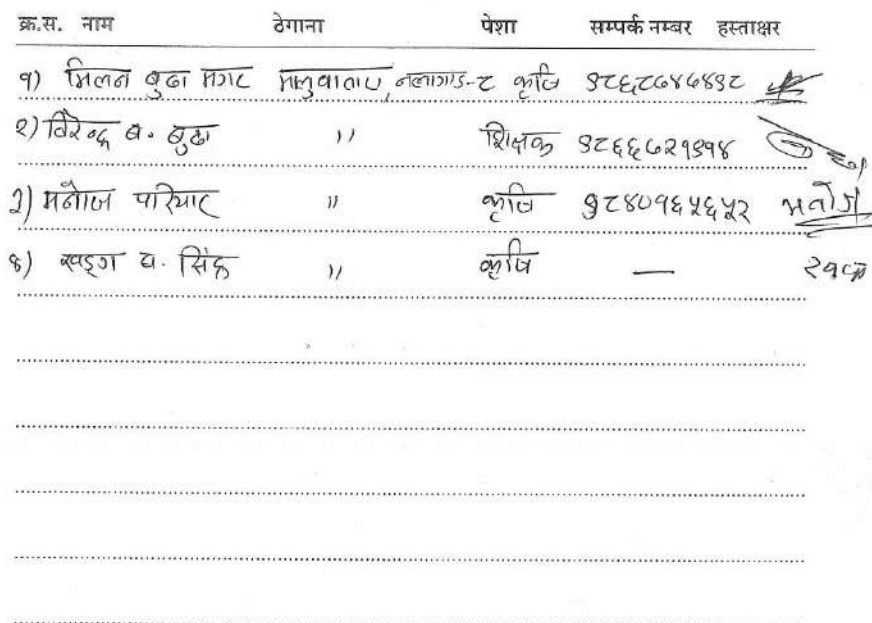 क्र.स. नाम ठेगाना पेशा सम्पर्क नम्बर हस्ताक्षर
१) मिलन बुढा मगर नलागाड-८ कृषि ९८६८७४७४९८
२) विरेन्द्र ब. बुढा " शिक्षक ९८६६७२१९१४
३) मनोज परियार " कृषि ९८४०१६५६५२ मनोज
४) खड्ग ब. सिंह " कृषि —